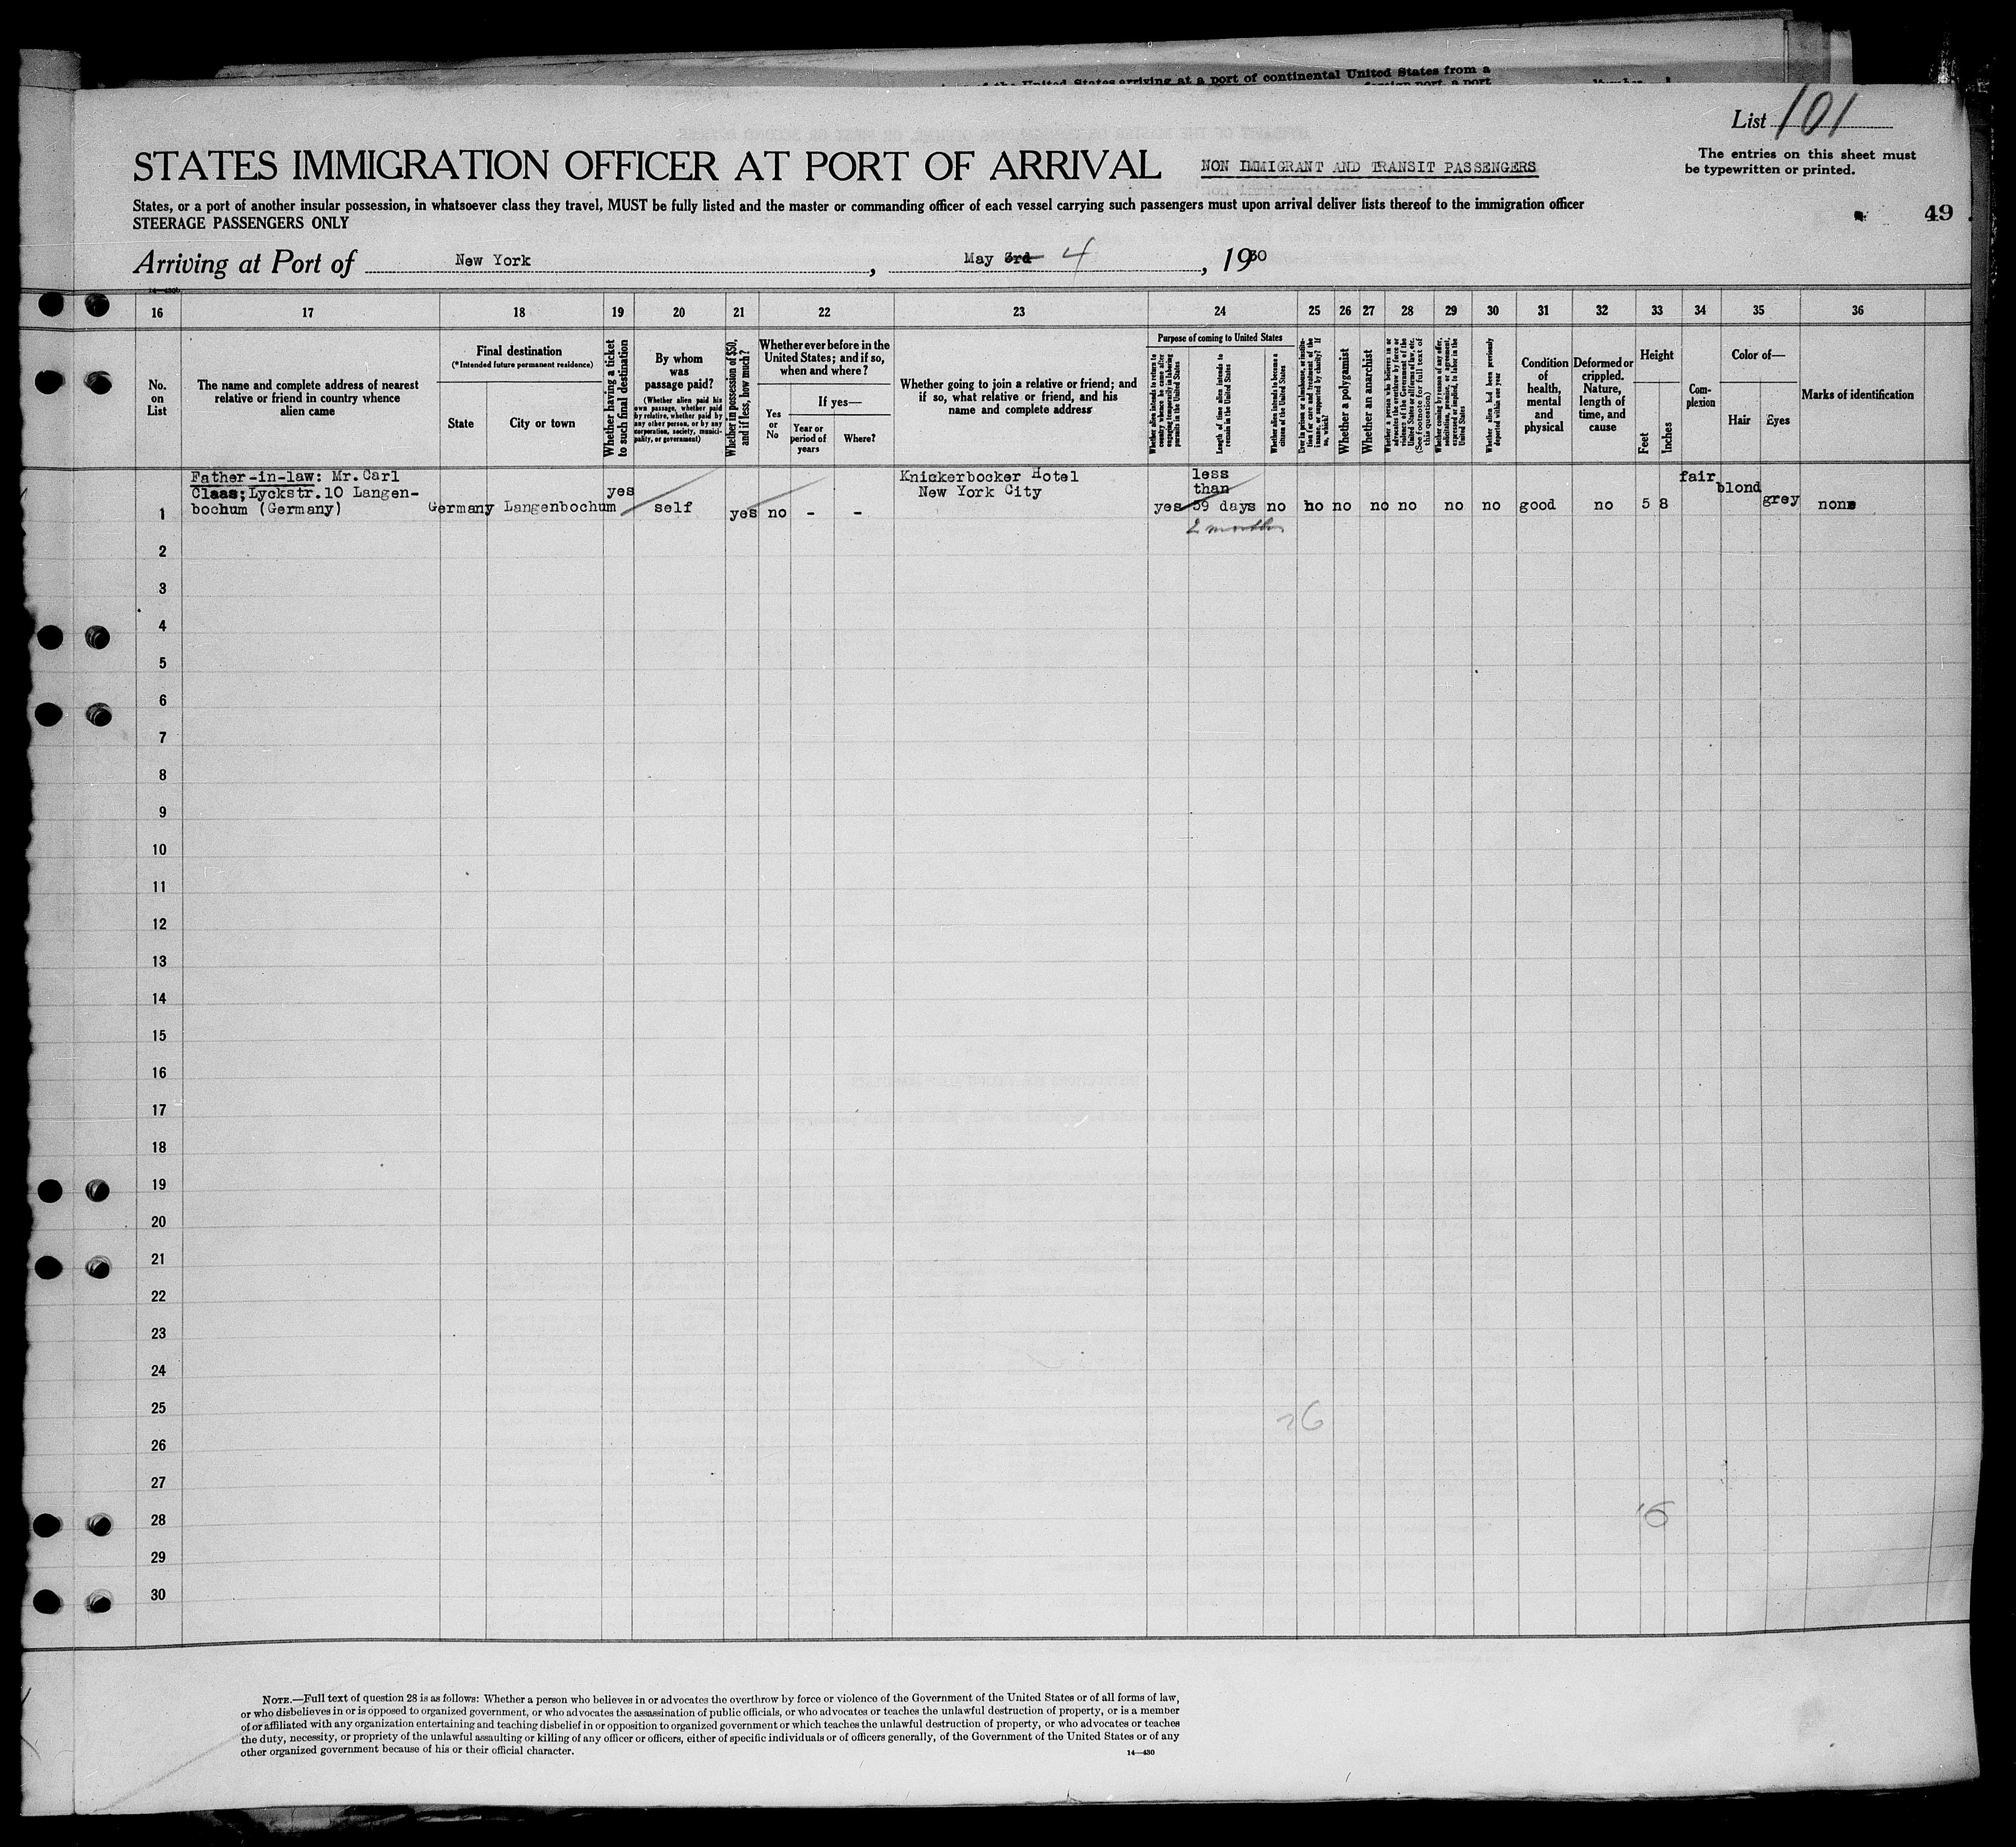 of the United States arriving at a port of continental United States from a
List 101
STATES IMMIGRATION OFFICER AT PORT OF ARRIVAL
NON IMMIGRANT AND TRANSIT PASSENGERS
The entries on this sheet must
be typewritten or printed.
States, or a port of another insular possession, in whatsoever class they travel, MUST be fully listed and the master or commanding officer of each vessel carrying such passengers must upon arrival deliver lists thereof to the immigration officer
STEERAGE PASSENGERS ONLY
49
Arriving at Port of New York, May 3rd 4, 1930
16 17 18 19 20 21 22 23 24 25 26 27 28 29 30 31 32 33 34 35 36
No.
on
List
The name and complete address of nearest
relative or friend in country whence
alien came
Final destination
(*Intended future permanent residence)
State
City or town
Whether having a ticket
to such final destination
By whom
was
passage paid?
(Whether alien paid his
own passage, whether paid
by relative, whether paid by
any other person, or by any
corporation, society, munici-
pality, or government)
Whether in possession of $50,
and if less, how much?
Whether ever before in the
United States; and if so,
when and where?
Yes
or
No
If yes—
Year or
period of
years
Where?
Whether going to join a relative or friend; and
if so, what relative or friend, and his
name and complete address
Purpose of coming to United States
Whether alien intends to return to
country whence he came after
engaging temporarily in laboring
pursuits in the United States
Length of time alien intends to
remain in the United States
Whether alien intends to become a
citizen of the United States
Ever in prison or almshouse, or institu-
tion for care and treatment of the
insane, or supported by charity? If
so, which?
Whether a polygamist
Whether an anarchist
Whether a person who believes in or
advocates the overthrow by force or
violence of the Government of the
United States or all forms of law, etc.
(See footnote for full text of
this question)
Whether coming by reason of any offer,
solicitation, promise, or agreement,
expressed or implied, to labor in the
United States
Whether alien had been previously
deported within one year
Condition
of
health,
mental
and
physical
Deformed or
crippled.
Nature,
length of
time, and
cause
Height
Feet
Inches
Com-
plexion
Color of—
Hair
Eyes
Marks of identification
Father-in-law: Mr. Carl
Claas; Lyckstr. 10 Langen-
bochum (Germany)
1 Germany Langenbochum yes self yes no - -
Knickerbocker Hotel
New York City
yes
less
than
59 days
2 months
no no no no no no no good no 5 8 fair blond grey none
2
3
4
5
6
7
8
9
10
11
12
13
14
15
16
17
18
19
20
21
22
23
24
25
26
27
28
29
30
NOTE.—Full text of question 28 is as follows: Whether a person who believes in or advocates the overthrow by force or violence of the Government of the United States or of all forms of law,
or who disbelieves in or is opposed to organized government, or who advocates the assassination of public officials, or who advocates or teaches the unlawful destruction of property, or is a member
of or affiliated with any organization entertaining and teaching disbelief in or opposition to organized government or which teaches the unlawful destruction of property, or who advocates or teaches
the duty, necessity, or propriety of the unlawful assaulting or killing of any officer or officers, either of specific individuals or of officers generally, of the Government of the United States or of any
other organized government because of his or their official character.
14—430